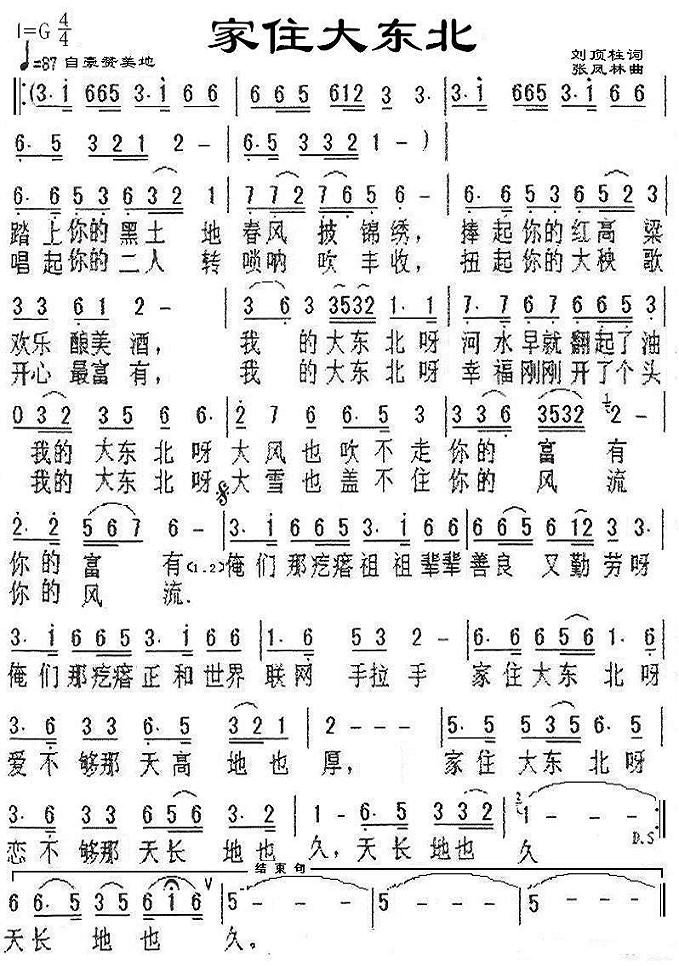 家住大东北
1=G 4/4
♩=87 自豪赞美地
刘顶柱词
张凤林曲
𝄆(3· i 665 3· i 6 6 | 6 6 5 612 3 3· | 3· i 665 3· i 6 6 |
6· 5 3 2 1 2 - | 6· 5 3 3 2 1 - ) |
6· 6 5 3 6 3 2 1 | 7 7 2 7 6 5 6 - | 6· 5 3 5 3 6 5 2 3 |
踏上你的黑土 地 春风 披 锦绣， 捧起你的红高 粱
唱起你的二人 转 唢呐 吹 丰收， 扭起你的大秧 歌
3 3 6 1 2 - | 3 6 3 3532 1· 1 | 7· 7 6 7 6 6 5 3 |
欢乐 酿美 酒， 我 的大东 北呀 河水早就翻起了油
开心 最富 有， 我 的大东 北呀 幸福刚刚开了个头
0 3 2 3 5 6 6· | 2 7 6 6· 5 3 | 3 3 6 3532 2 - |
我的 大东 北呀 大风也吹不走你的 富 有
我的 大东 北呀 大雪也盖不住你的 风 流
2· 2 5 6 7 6 - | 3· i 6 6 5 3· i 6 6 | 6· 5 6 12 3 3· |
你的 富 有(1.2)俺们那疙瘩祖祖辈辈善良 又勤劳呀
你的 风 流.
3· i 6 6 5 3· i 6 6 | 1· 6 5 3 2 - | 6· 6 6 5 6 1· 6 |
俺们那疙瘩正和世界 联网 手拉手 家住大东 北呀
3· 6 3 3 6· 5 3 2 1 | 2 - - - | 5· 5 5 3 5 6· 5 |
爱不够那天高 地也 厚， 家住大东北呀
3· 6 3 3 6 5 6 3· 2 | 1 - 6· 5 3 3 2 | 1 - - 𝄇
恋不够那天长 地也 久，天长地也 久
D.S
结束句
6 6· 5 3 5 6 i 6 | 5 - - - | 5 - - - | 5 - - - 𝄇
天长 地也 久。